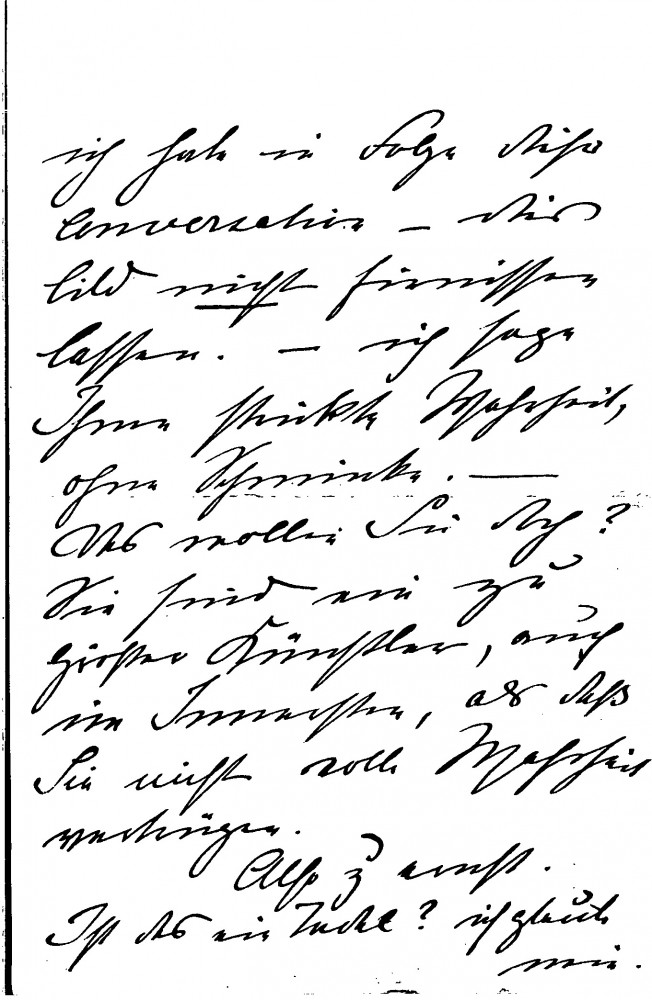 ich habe in Folge dieser
Conversation – das
Bild nicht firnissen
lassen. – ich sage
Ihnen strikte Wahrheit,
ohne Schminke. —
Was wollen Sie doch?
Sie sind ein zu
großer Künstler, auch
im Innersten, als daß
Sie nicht volle Wahrheit
vertrügen.
Also zu ernst.
Ist das ein Tadel? ich glaube
nein.